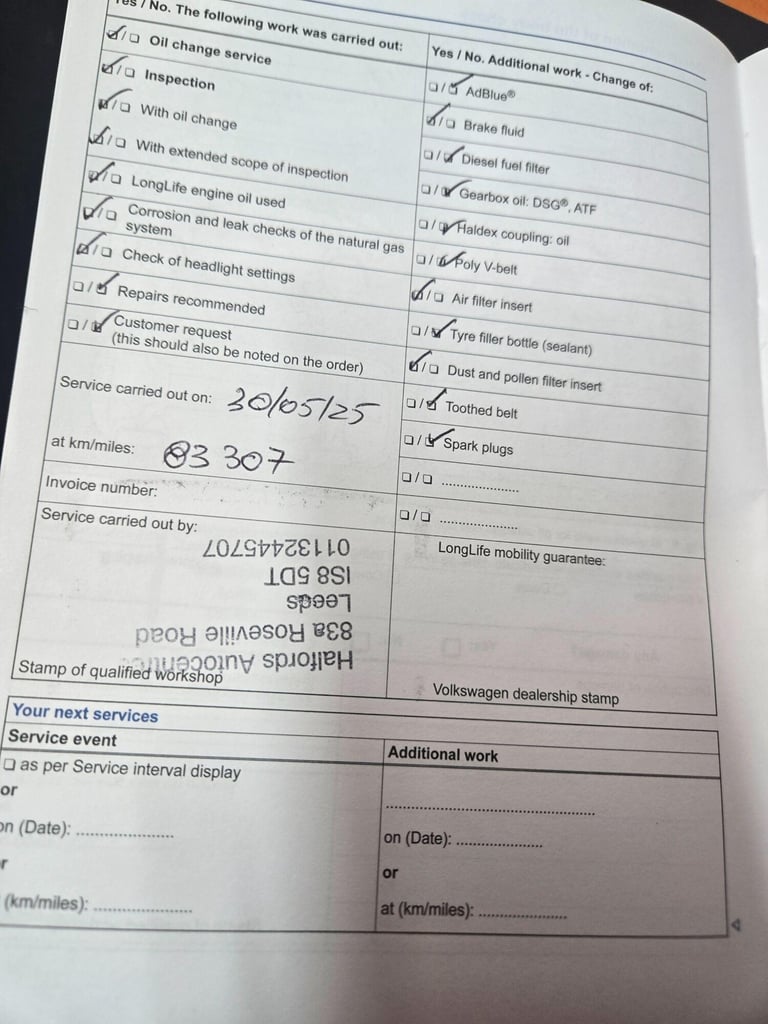 Yes / No. The following work was carried out:
☑/☐ Oil change service
☑/☐ Inspection
☑/☐ With oil change
☑/☐ With extended scope of inspection
☑/☐ LongLife engine oil used
☑/☐ Corrosion and leak checks of the natural gas
system
☑/☐ Check of headlight settings
☐/☑ Repairs recommended
☐/☑ Customer request
(this should also be noted on the order)
Service carried out on: 30/05/25
at km/miles: 83 307
Invoice number:
Service carried out by:
Halfords Autocentre
83a Roseville Road
Leeds
lS8 5DT
01132445707
Stamp of qualified workshop
Yes / No. Additional work - Change of:
☐/☑ AdBlue®
☑/☐ Brake fluid
☐/☑ Diesel fuel filter
☐/☑ Gearbox oil: DSG®, ATF
☐/☑ Haldex coupling: oil
☐/☑ Poly V-belt
☑/☐ Air filter insert
☐/☑ Tyre filler bottle (sealant)
☑/☐ Dust and pollen filter insert
☐/☑ Toothed belt
☐/☑ Spark plugs
☐/☐ ....................
☐/☐ ....................
LongLife mobility guarantee:
Volkswagen dealership stamp
Your next services
Service event
☐ as per Service interval display
or
on (Date): ....................
(km/miles): ....................
Additional work
..........................................
on (Date): ....................
or
at (km/miles): ....................